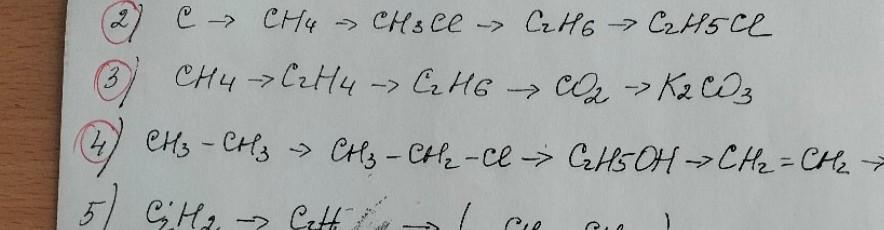 2) C → CH4 → CH3Cl → C2H6 → C2H5Cl
3) CH4 → C2H4 → C2H6 → CO2 → K2CO3
4) CH3 - CH3 → CH3 - CH2 - Cl → C2H5OH → CH2 = CH2 →
5) C2H2 →